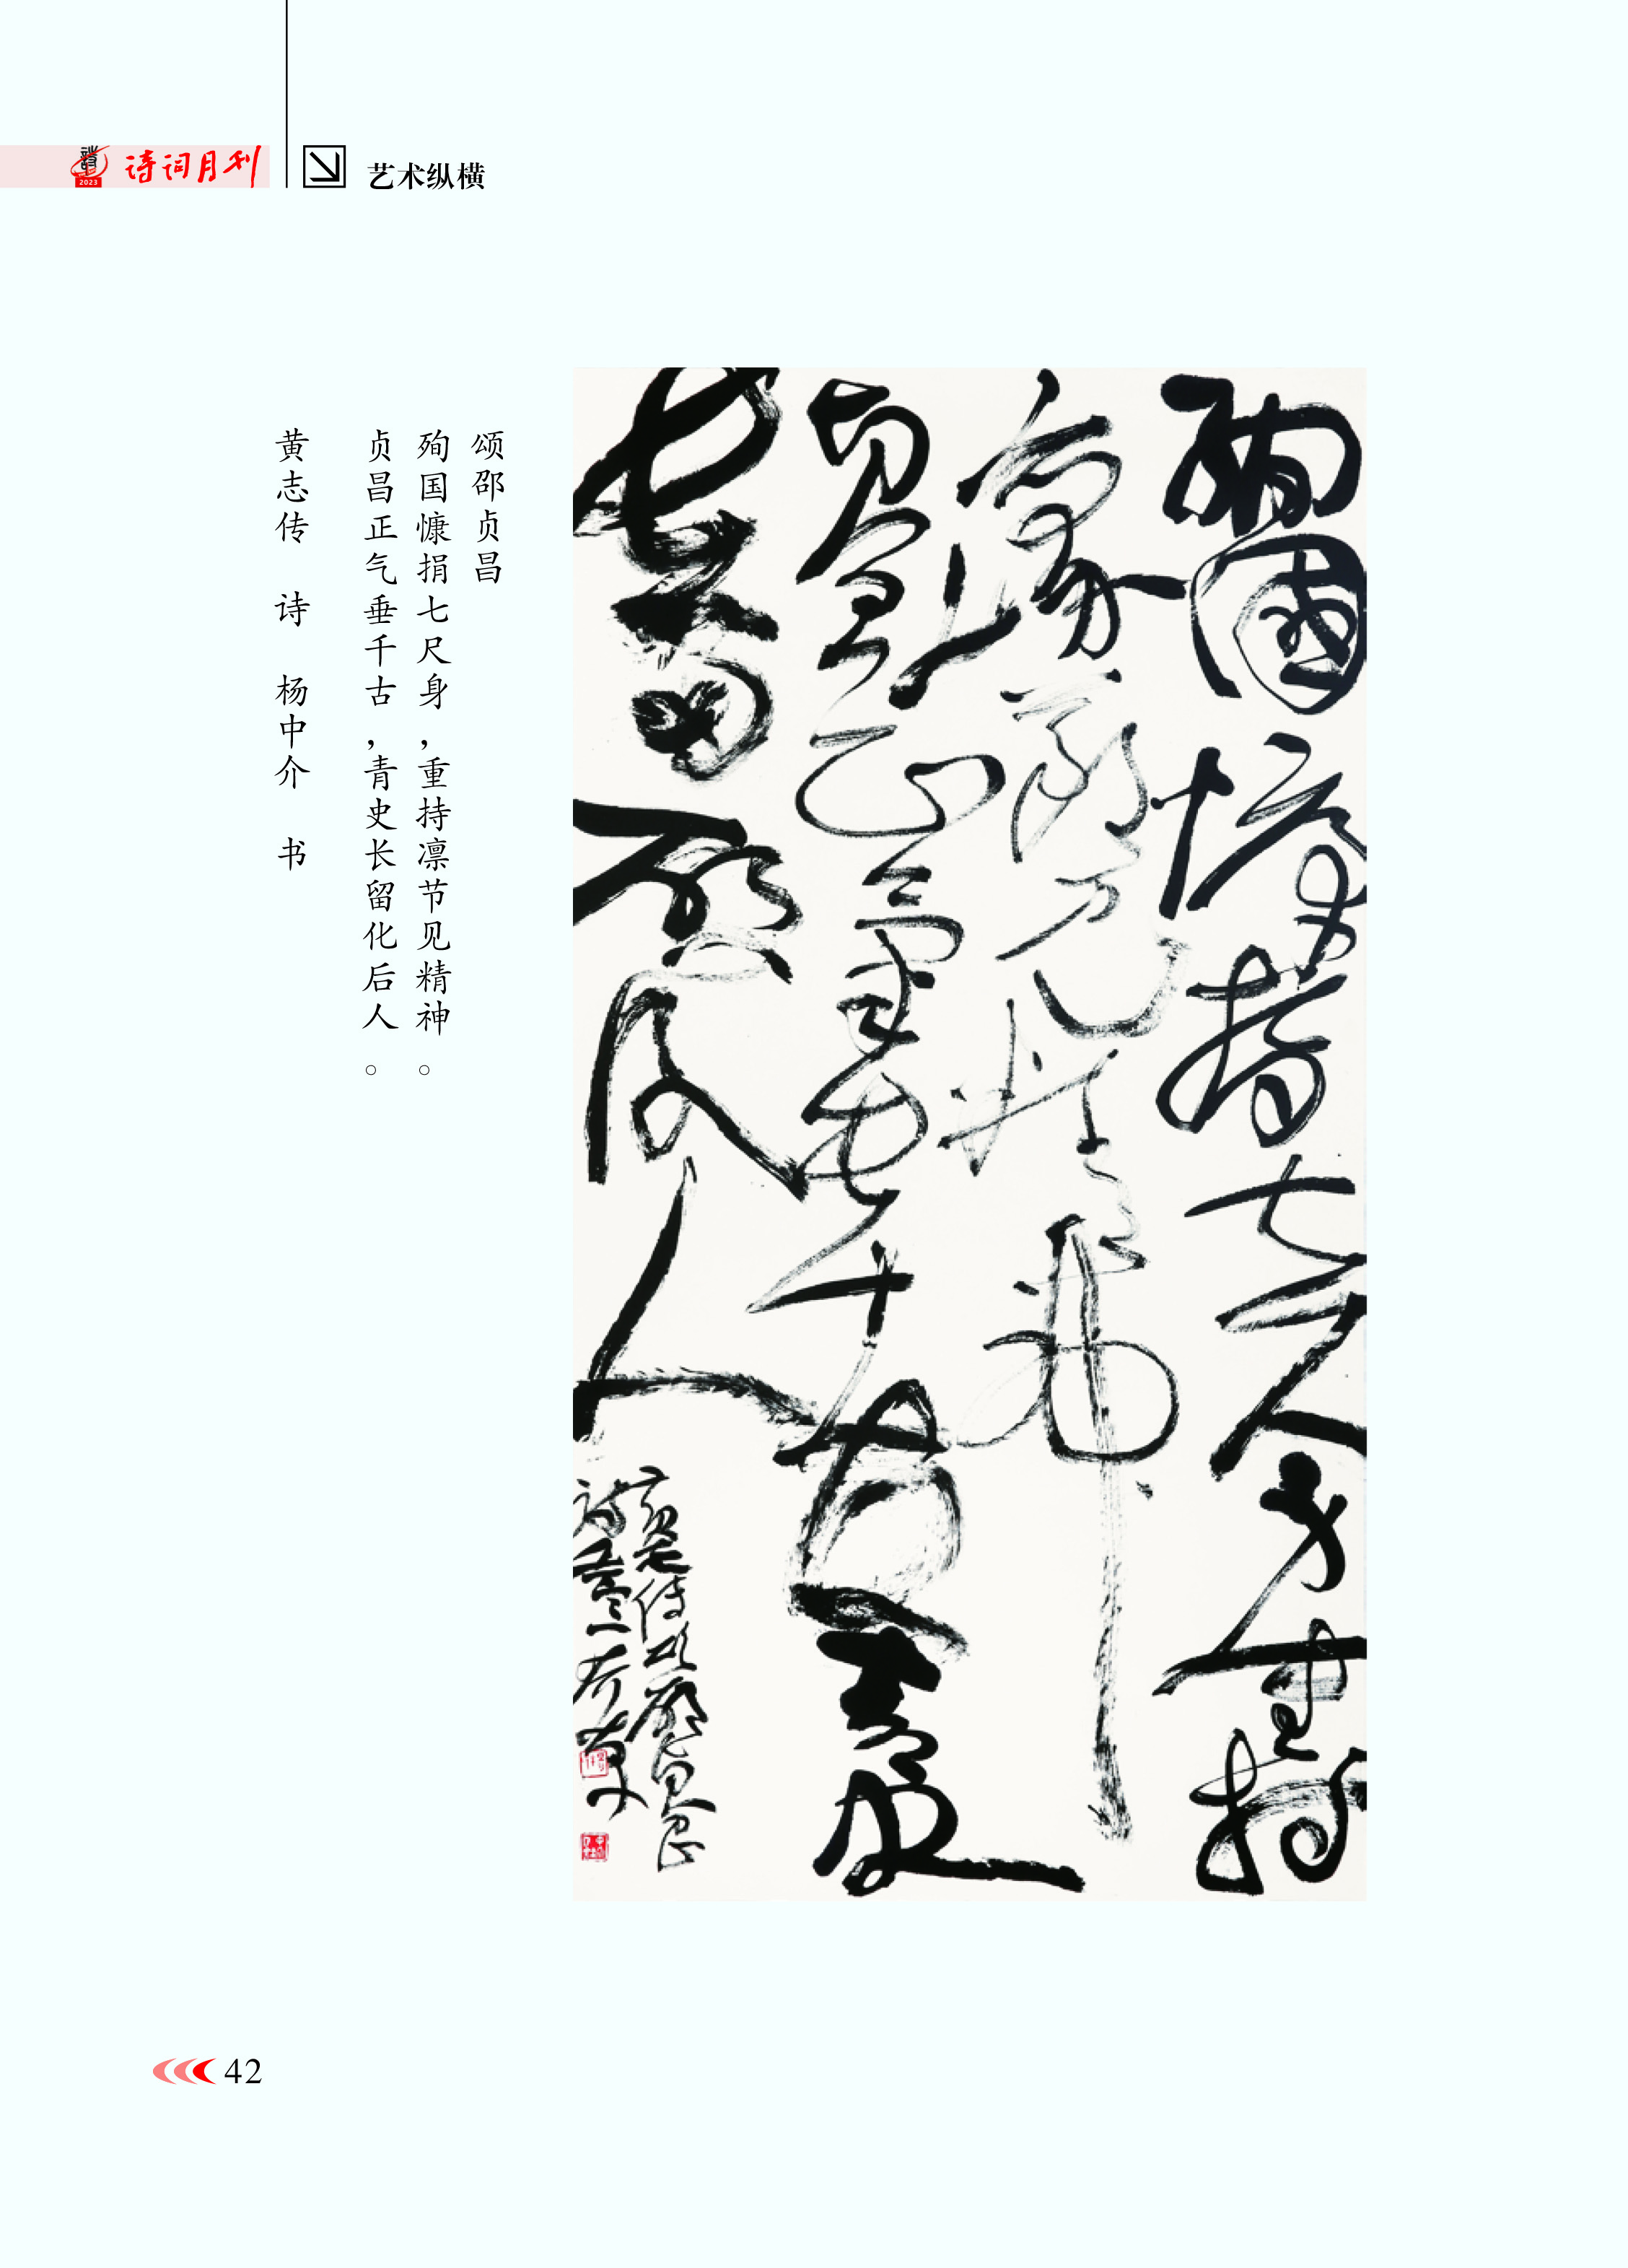 诗词月刊
2023
艺术纵横
殉国慷捐七尺身重持
凛节见精神
贞昌正气垂千古青史
长留化后人
颂邵贞昌
殉国慷捐七尺身，重持凛节见精神。
贞昌正气垂千古，青史长留化后人。
黄志传 诗 杨中介 书
42